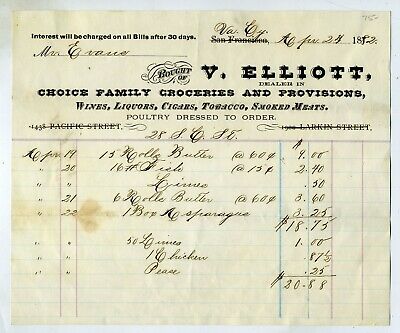 750
Interest will be charged on all Bills after 30 days.
Va. Cy.
San Francisco, Apr 24 1882.
Mr Evans
BOUGHT OF V. ELLIOTT,
DEALER IN
CHOICE FAMILY GROCERIES AND PROVISIONS,
WINES, LIQUORS, CIGARS, TOBACCO, SMOKED MEATS.
POULTRY DRESSED TO ORDER.
1438 PACIFIC STREET. 1900 LARKIN STREET.
28 S C St.
Apr 19 15 Rolls Butter @ 60¢ $ 9.00
" 20 16 # Fish @ 15¢ 2.40
" " Limes .50
" 21 6 Rolls Butter @ 60¢ 3.60
" 22 1 Box Asparagus 3.25
$18.75
" " 50 Limes 1.00
" " 1 Chicken .87½
" " Pease .25
$20.88